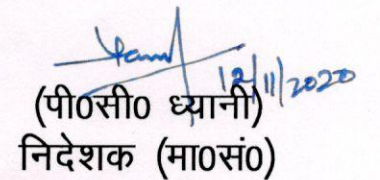 12/11/2020
(पी0सी0 ध्यानी)
निदेशक (मा0सं0)